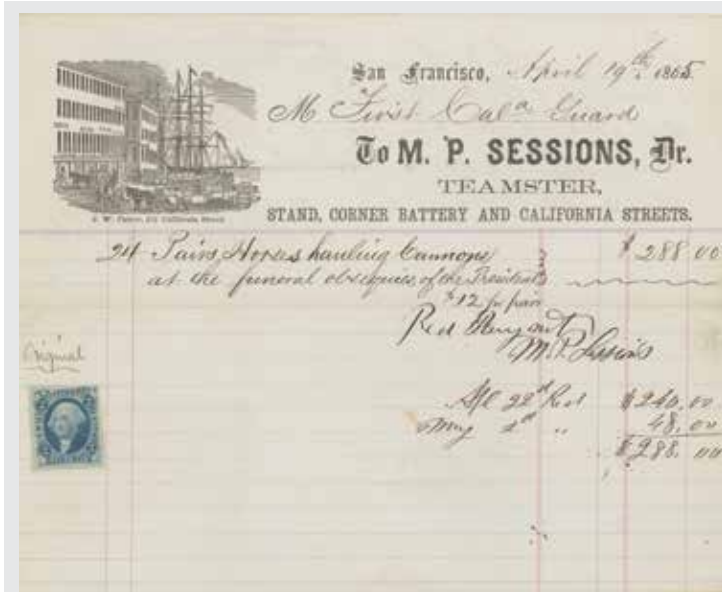 San Francisco, April 19th 1865
M First Cala Guard
To M. P. SESSIONS, Dr.
TEAMSTER,
STAND, CORNER BATTERY AND CALIFORNIA STREETS.
24 Pairs Horses hauling Cannons $288 00
at the funeral obsequies of the President
$12 pr pair
Recd Paymt
M. P. Sessions
Original
22d Recd $240.00
May 2d " 48.00
$288.00